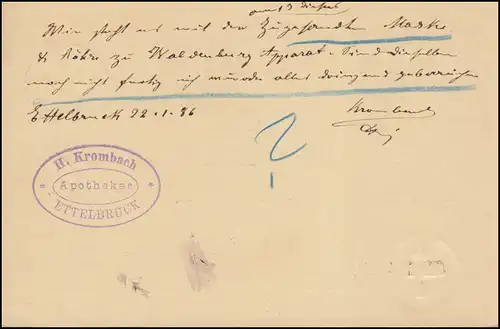 am 13 dieses
Wie steht es mit der Zugesandten Maske
& Röhre zu Waldenburg Apparat. Sind dieselben
noch nicht fertig ich würde alles dringend gebrauchen
Ettelbruck 22.1.86 Krombach
?
H. Krombach
* Apotheker *
ETTELBRUCK